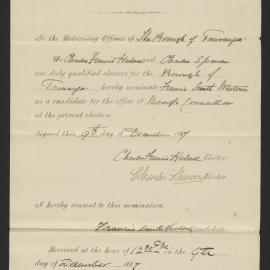 To the Returning Officer of The Borough of Tauranga
We Charles Francis Hulme and Charles Spence
two duly qualified electors for the Borough of
Tauranga hereby nominate Francis Smith
as a candidate for the office of Borough Councillor
at the present election.
Signed this 9th day of December 1887
Charles Francis Hulme Elector
Charles Elector
I hereby consent to this nomination.
Francis Smith Candidate.
Received at the hour of 12 in the 9th
day of December 1887